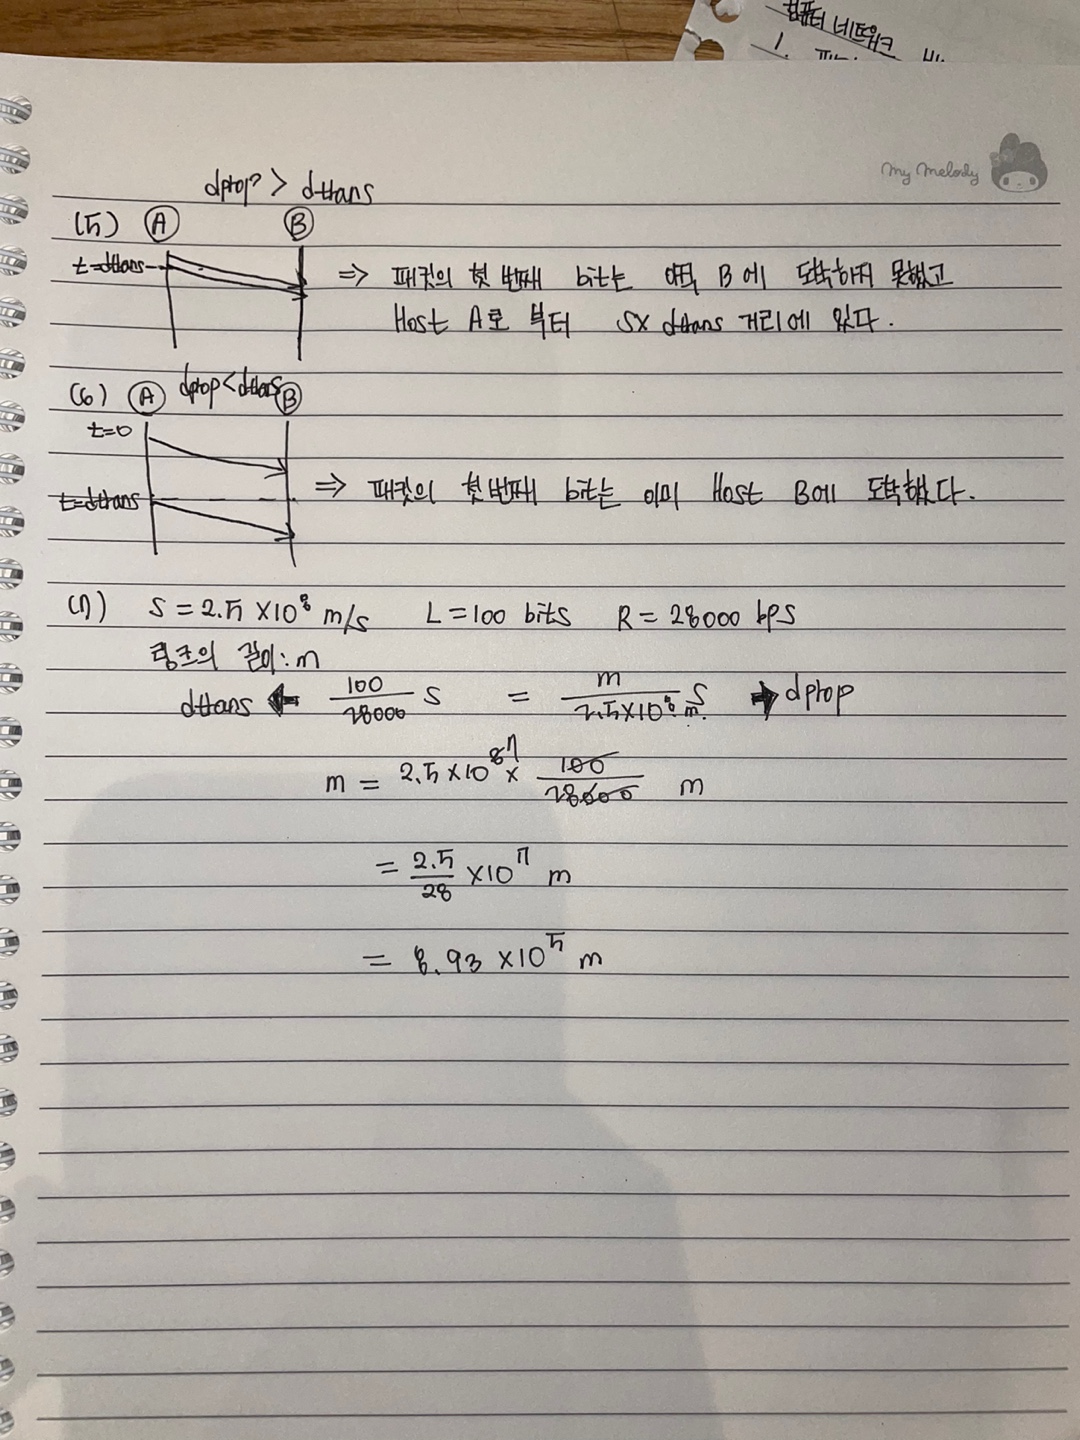 컴퓨터 네트워크
1.
My Melody
dprop > dtrans
(5) A B
t=dtrans
⇒ 패킷의 첫 번째 bit는 아직 B에 도착하지 못했고
Host A로 부터 S× dtrans 거리에 있다.
(6) A dprop<dtrans B
t=0
t=dtrans
⇒ 패킷의 첫 번째 bit는 이미 Host B에 도착했다.
(7) S = 2.5 ×10⁸ m/s L = 100 bits R = 28000 bps
링크의 길이 : m
dtrans ← 100/28000 s = m/2.5×10⁸ s/m → dprop
m = 2.5 ×10⁸ ⁷ × 100/28000 m
= 2.5/28 ×10⁷ m
= 8.93 ×10⁵ m